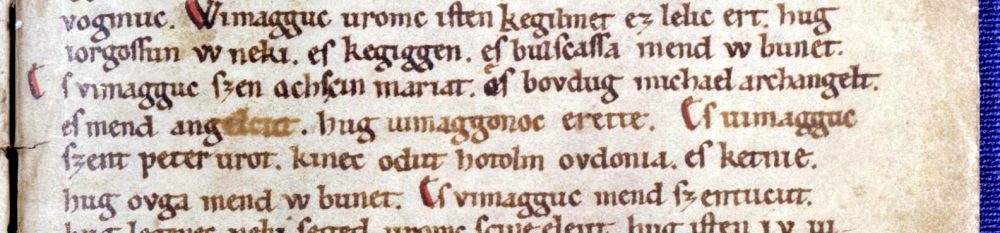 vogmuc. Wimagguc uromc iſten kegilmet ez lelic ert. hug
iorgoſſun w neki. eſ kegiggen. eſ bulſcaſſa mend w bunet.
Eſ vimagguc ſzen achſcin mariat. eſ bovdug michael archangelt.
eſ mend angelcut. hug uimaggonoc erette. Eſ uimagguc
ſzent peter urot. kinec odut hotolm ovdonia. eſ ketnie.
hug ovga mend w bunet. Eſ vimagguc mend ſzentucut.
hug legenec neki ſeged uromc ſcine eleut. hug iſten